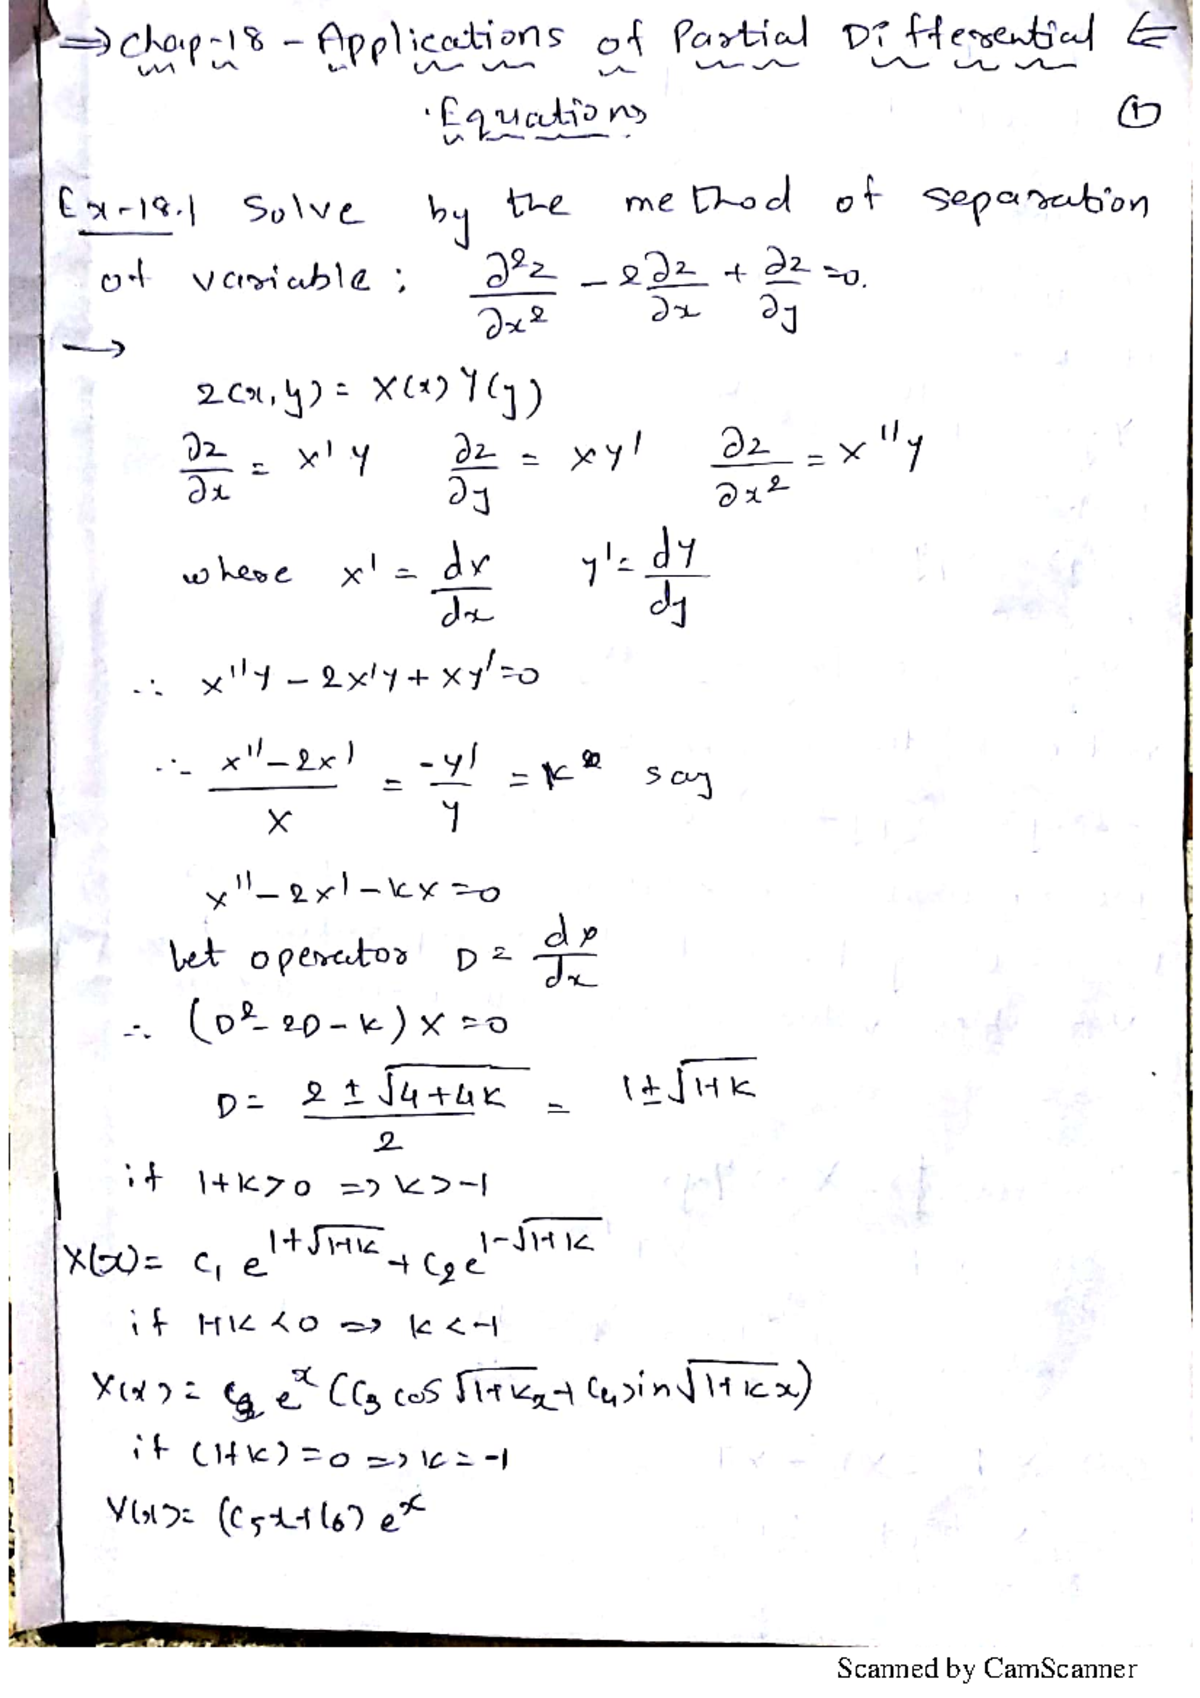 ⇒ Chap-18 - Applications of Partial Differential ⇐
Equations ①
Ex-18.1 Solve by the method of separation
of variable; ∂²z/∂x² - 2∂z/∂x + ∂z/∂y = 0.
→
z(x,y) = X(x) Y(y)
∂z/∂x = X'Y ∂z/∂y = XY' ∂z/∂x² = X''Y
where X' = dx/dx Y' = dY/dy
∴ X''Y - 2X'Y + XY' = 0
∴ (X'' - 2X')/X = -Y'/Y = k say
X'' - 2X' - kX = 0
Let operator D = d/dx
∴ (D² - 2D - k) X = 0
D = (2 ± √(4+4k))/2 = 1 ± √(1+k)
if 1+k > 0 ⇒ k > -1
X(x) = C₁ e^(1+√(1+k)) + C₂ e^(1-√(1+k))
if 1+k < 0 ⇒ k < -1
X(x) = e^x (C₃ cos √(1+k) x + C₄ sin √(1+k) x)
if (1+k) = 0 ⇒ k = -1
X(x) = (C₅x + C₆) e^x
Scanned by CamScanner